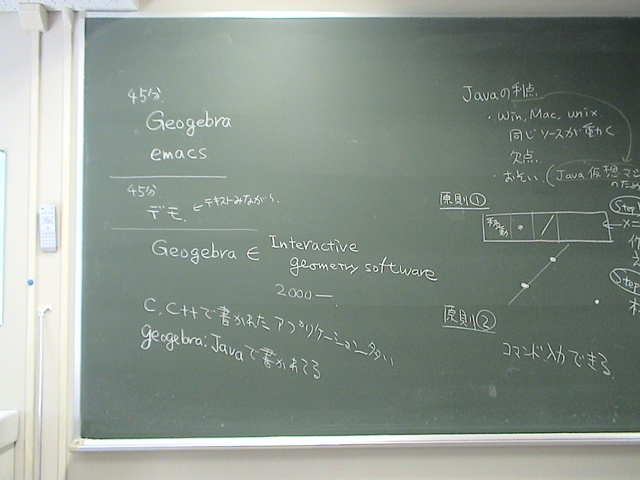 45分
Geogebra
emacs
45分
デモ ← テキストみながら
Geogebra ∈ Interactive
geometry software
2000―
C, C++で書かれたアプリケーション多い
geogebra: Javaで書かれてる
Javaの利点
・Win, Mac, unix
同じソースが動く
欠点
・おそい (Java 仮想マシ
のため
原則①
移動
←メニ
Step
Step
原則②
コマンド入力できる